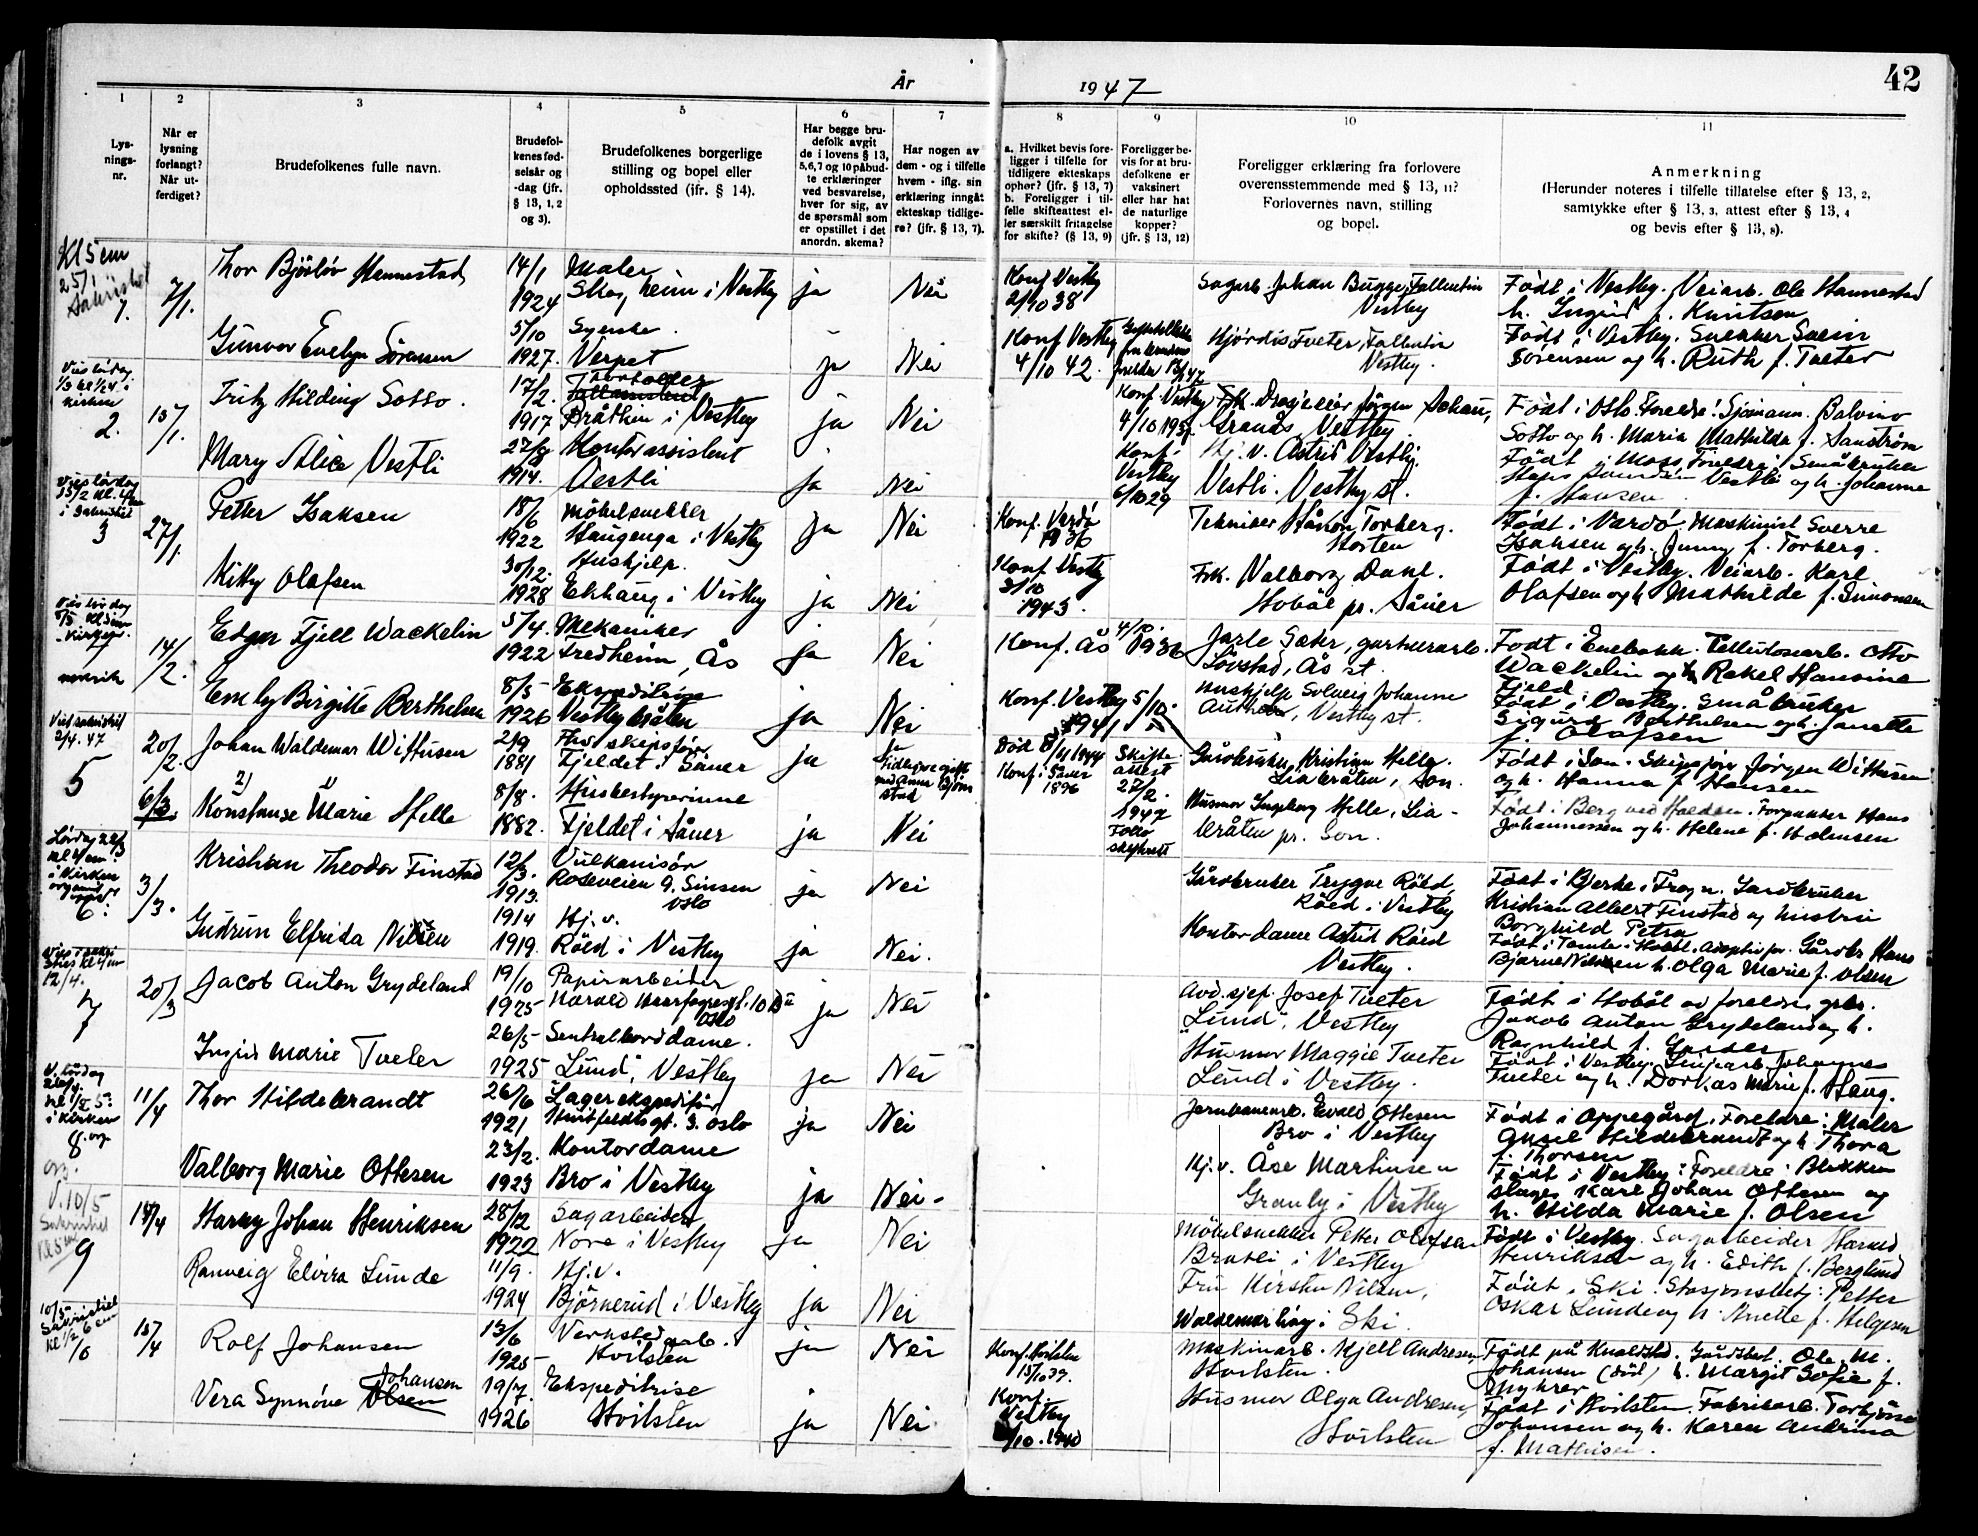 År 1947
42
1 2 3 4 5 6 7 8 9 10 11
Lys-
nings-
nr.
Når er
lysning
forlangt?
Når ut-
ferdiget?
Brudefolkenes fulle navn.
Brudefol-
kenes fød-
selsår og
-dag (jfr.
§ 13, 1, 2
og 3).
Brudefolkenes borgerlige
stilling og bopel eller
opholdssted (ifr. § 14).
Har begge bru-
defolk avgit
de i lovens § 13,
5,6,7 og 10 påbud-
te erklæringer
ved besvarelse,
hver for sig, av
de spørsmål som
er opstillet i det
anordn. skema?
Har nogen av
dem - og i tilfelle
hvem - iflg. sin
erklæring inngåt
ekteskap tidlige-
re? (jfr. § 13, 7).
a. Hvilket bevis fore-
ligger i tilfelle for
tidligere ekteskaps
ophør? (jfr. § 13, 7)
b. Foreligger i til-
felle skifteattest el-
ler særskilt fritagelse
for skifte? (§ 13, 9)
Foreligger be-
vis for at bru-
defolkene er
vaksinert
eller har hat
de naturlige
kopper?
(jfr. § 13, 12)
Foreligger erklæring fra forlovere
overensstemmende med § 13, 11?
Forlovernes navn, stilling
og bopel.
Anmerkning
(Herunder noteres i tilfelle tillatelse efter § 13, 2,
samtykke efter § 13, 3, attest efter § 13, 4
og bevis efter § 13, 8).
Kl 5 em
25/1
Sakristiet
1. 7/1. Thor Bjørløv Hannestad 14/1 1924 Maler
Skogheim i Vestby ja Nei Konf. Vestby
2/10 38 Sagarb. Johan Bugge, Follentin
Vestby Født i Vestby. Veiarb. Ole Hannestad
h. Ingrid f. Knutsen
Gunvor Evelyn Sørensen 5/10 1927. Syerske.
Verpet ja Nei Konf Vestby
4/10 42. Hjørdis Tveter, Follentin
Vestby. Født i Vestby. Snekker Svein
Sørensen og h. Ruth f. Tveter
Vies lørdag
1/3 kl 1/2 4 i
kirken
2. 15/1. Fritz Hilding Sotto. 17/2. 1917
Bråthen i Vestby ja Nei Konf. Vestby
4/10 193 Jørgen Schau,
Granås, Vestby Født i Oslo. Foreldre: Sjømann Balvino
Sotto og h. Maria Mathilde f. Sanstrøm
Mary Alice Vestli 27/8 1914. Kontorassistent
Vestli ja Nei Konf. i
Vestby
6/10 29 Hj. v. Astrid Vestli.
Vestli. Vestby st. Født i Moss. Foreldre: Småbruker
Vestli og h. Johanne
f. Hansen
Vies lørdag
15/2 Kl. 4 em
i Sakristiet
3 27/1. Petter Isaksen 18/6 1922 Møbelsnekker
Haugenga i Vestby ja Nei Konf. Vardø
1936 Tekniker Håkon Torberg.
Horten Født i Vardø. Maskinist Sverre
Isaksen og h. Jenny f. Torberg.
Kitty Olafsen 30/12. 1928 Hushjelp.
Ekhaug i Vestby ja Nei Konf. Vestby
3/10
1943. Frk. Valborg Dahl.
Hobøl pr. Såner Født i Vestby. Veiarb. Karl
Olafsen og h. Mathilde f. Simonsen
14/2. Edgar Fjell Wackelin 5/4. 1922 Mekaniker
Fredheim, Ås ja Nei Konf. Ås 4/10. 1936 Jarle Sæter, gartnerarb.
Løvstad, Ås st. Født i Enebakk. Cellulosearb. Otto
Wackelin og h. Rakel Hansine
Fjeld
Emly Birgitte Berthelsen 8/5 1926 Ekspeditrise
Vestbybråten ja Nei Konf. Vestby 5/10.
1941 Hushjelp Solveig Johanne
Vestby st. Født i Vestby. Småbruker
Sigurd Berthelsen og h. Janette
f. Olafsen
Viet sakristiet
2/4. 47
5 20/2. Johan Waldemar Withusen 2/9 1881 Fhv. skipsfør.
Fjeldet i Såner ja ja
tidligere gift
med Anna Bjørn
stad Død 8/11 1944
Konf. i Såner
1896 Skifte-
attest
27/2.
1947
Follo
skifterett Gårdbruker Kristian Helle.
Liabråten, Son. Født i Son. Skipsfør Jørgen Withusen
og h. Hanna f. Hansen
6/3. 2) 1) Konstanse Marie Helle 8/8. 1882. Husbestyrerinne
Fjeldet i Såner ja Nei Husmor Ingeborg Helle, Lia-
bråten pr. Son. Født i Berg ved Halden. Forpakter Hans
Johannessen og h. Helene f. Halvorsen
Lørdag 22/3
kl 4 em.
i Kirken
6. 3/3. Kristian Theodor Finstad 12/3. 1913. Vulkanisør
Roseveien 9, Sinsen
Oslo ja Nei Gårdbruker Trygve Røed,
Røed i Vestby Født i Bjerke i Frogn. Gårdbruker
Kristian Albert Finstad og hustru
Borghild Petra
Gudrun Elfrida Nilsen 19/4 1919. Hj. v.
Røed i Vestby ja Nei. Kontordame Astrid Røed
Vestby. Født i Tomter i Hobøl. Adoptivfor. Gårdbr Hans
Bjarne Nilsen h. Olga Marie f. Olsen
12/4.
7 20/3 Jacob Anton Grydeland 19/10 1925 Papirarbeider
Harald Haarfagresgt. 10
Oslo ja Nei Avd. sjef. Josef Tveter
"Lund", Vestby Født i Hobøl av foreldre gbr.
Jakob Anton Grydeland og h.
Ragnhild f. Garder
Ingrid Marie Tveter 26/5- 1925 Sentralborddame.
"Lund", Vestby ja Nei Husmor Maggie Tveter
Lund i Vestby. Født i Vestby. Linjearb. Johannes
Tveter og h. Dorkas Marie f. Haug.
V. lørdag
26/4.
kl 1/2 5:
i Kirken
8. org. 11/4 Thor Hildebrandt 26/6 1921 Lagerekspeditør
Huitfeldtsgt. 3. Oslo ja Nei Jernbanearb. Evald Ottesen
Bro i Vestby Født i Oppegård. Foreldre: Maler
Aksel Hildebrandt og h. Thora
f. Thorsen
Valborg Marie Ottesen 23/2. 1923 Kontordame
Bro i Vestby ja Nei- Hj. v. Åse Martinsen
Granly i Vestby Født i Vestby: Foreldre: Blikken
slager Karl Johan Ottesen og
h. Hilda Marie f. Olsen
V. 10/5
Sakristiet
Kl 5
9 15/4 Harry Johan Henriksen 28/12 1922 Sagarbeider
Nore i Vestby ja Nei Møbelsnekker Petter Olafsen
Bratli i Vestby Født i Vestby. Sagarbeider Harald
Henriksen og h. Edith f. Berglund
Ranveig Elvira Lunde 11/9. 1924 Hj. v.
Bjørnerud i Vestby ja Nei Fru Kirsten Nilsen,
Waldemarhøy i Ski. Født i Ski. Stasjonsbetj. Petter
Oskar Lunde og h. Anette f. Helgesen
10/5
Sakristiet
Kl 1/2 6 em
10 15/4 Rolf Johansen 13/6 1925- Verkstedarb.
Hvitsten ja Nei Konf. Hvitsten
15/10 39. Maskinarb. Kjell Andresen,
Hvitsten. Født på Knaldstad. Gårdsbet. Ole M.
Johansen (død) h. Margit Sofie f.
Nyhrer
Vera Synnøve Olsen Johansen 19/7. 1926 Ekspeditrise
Hvitsten ja Nei Konf.
Vestby
/10. 1940 Husmor Olga Andresen,
Hvitsten Født i Hvitsten. Fabrikarb. Torbjørn
Johansen og h. Karen Andrina
f. Mathisen.